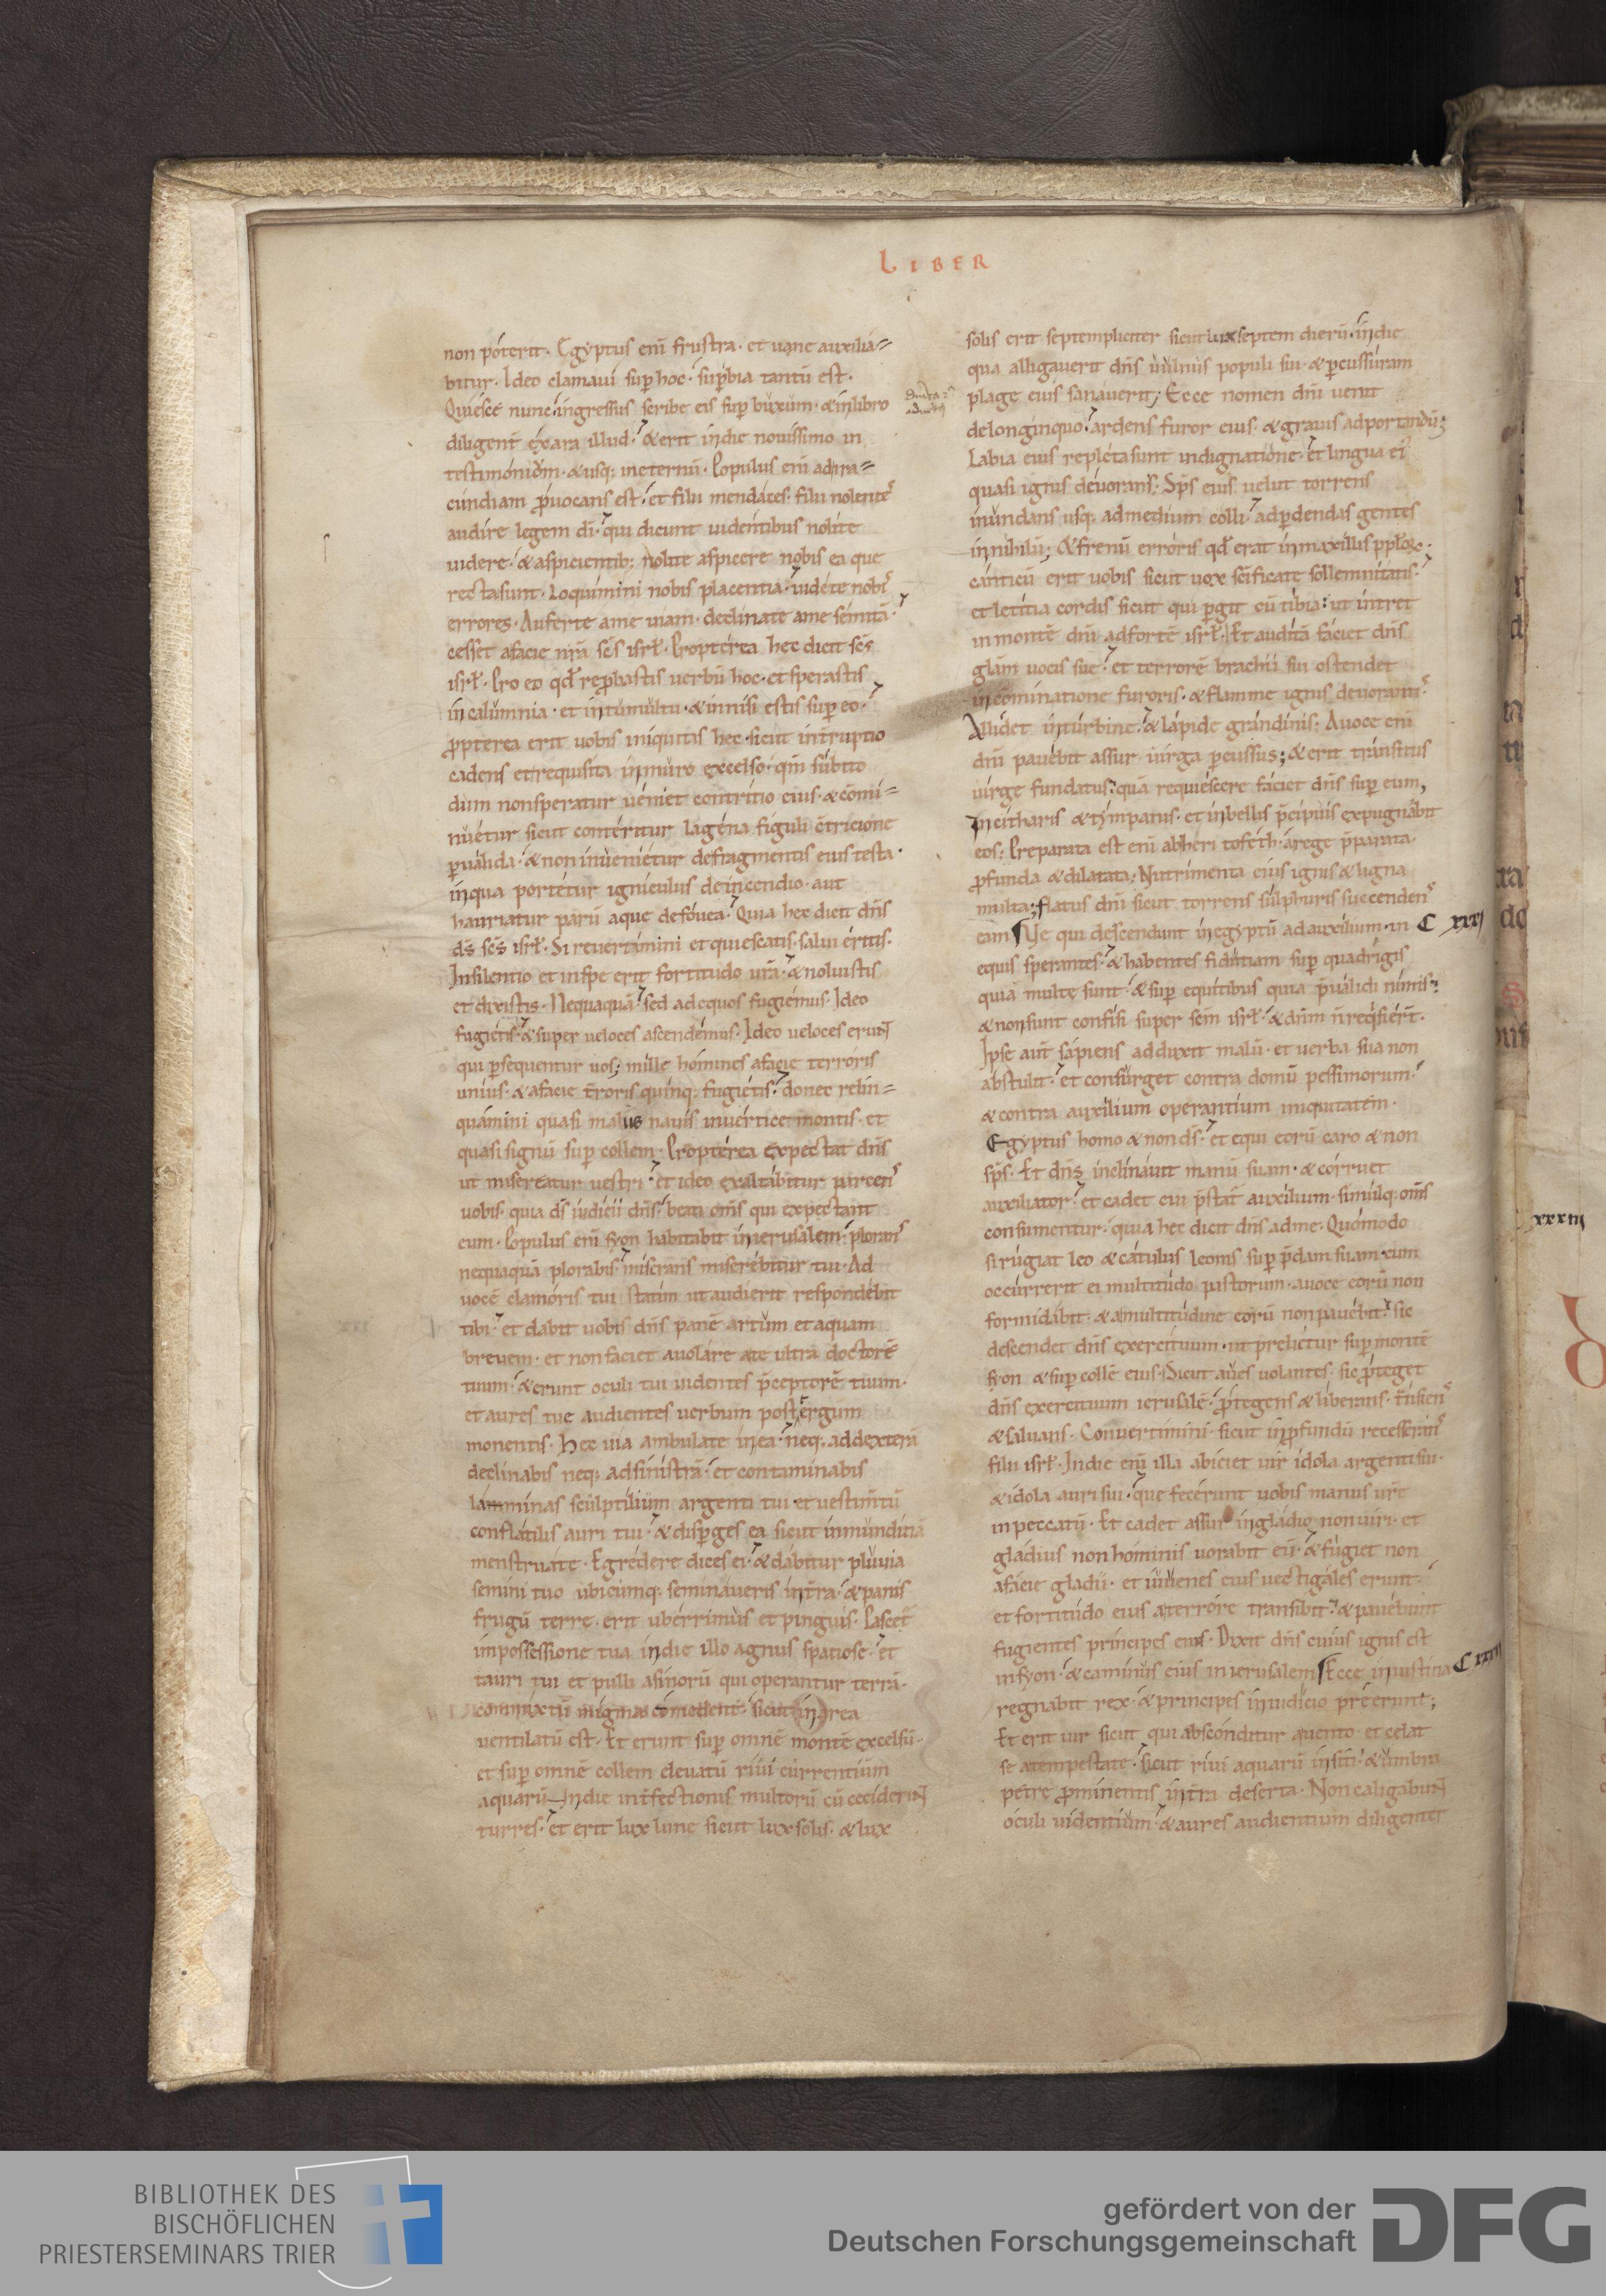 LIBER
non póterit. Egyptus eni frustra. et uane auxilia=
bitur. Ideo clamaui sup hoc. supbia tantū est.
Quiesce nunc ingressus scribe eis sup buxum. & in libro
diligent exara illud. & erit in die nouissimo in
testimonium. & usq; in eternū. Populus eni ad ira=
cundiam puocans est. et filii mendaces. filii nolente
audire legem di. qui dicunt uidentibus nolite
uidere. & aspicientib; nolite aspicere nobis ea que
recta sunt. Loquimini nobis placentia. uidete nob
errores. Auferte a me uiam. declinate a me semitā.
cesset a facie nra scs isrl. Propterea hec dicit scs
isrl. Pro eo qd reprobastis uerbū hoc. et sperastis
in calumnia. et in tumultu. & innisi estis sup eo.
ppterea erit uobis iniquitas hec. sicut interruptio
cadens et requisita in muro excelso. qm subito
dum non speratur ueniet contritio eius. & comi=
nuetur sicut conteritur lagena figuli ctricione
pualida. & non inuenietur de fragmentis eius testa.
in qua portetur igniculus de incendio. aut
hauriatur parū aque de fouea. Quia hec dicit dns
ds scs isrl. Si reuertimini et quiescatis. salui eritis.
In silentio et in spe erit fortitudo urā. & noluistis
et dixistis. Nequaquā. sed ad equos fugiemus. Ideo
fugietis. & super ueloces ascendemus. Ideo ueloces erunt
qui psequentur uos; mille homines a facie terroris
unius. & a facie troris quinq; fugietis. donec relin=
quamini quasi malus nauis in uertice montis. et
quasi signū sup collem. Propterea expectat dns
ut misereatur uestri. et ideo exaltabitur parcens
uobis. quia ds iudicii dns. beati oms qui expectant
eum. Populus eni syon habitabit in ierusalem. plorans
nequaquā plorabis. miserans miserebitur tui. Ad
uocē clamoris tui statim ut audierit respondebit
tibi. et dabit uobis dns panē artum et aquam
breuem. et non faciet auolare a te ultra doctorē
tuum. & erunt oculi tui uidentes pceptorē tuum.
et aures tue audientes uerbum post tergum
monentis. Hec uia ambulate in ea. neq; ad dexterā
declinabis neq; ad sinistrā. et contaminabis
lamminas sculptilium argenti tui. et uestimtū
conflatilis auri tui. & disperges ea sicut inmunditiā
menstruate. Egredere dices ei. & dabitur pluuia
semini tuo ubicumq; seminaueris in tra. & panis
frugū terre. erit uberrimus et pinguis. Pascet
in possessione tua in die illo agnus spatiose. et
tauri tui et pulli asinorū qui operantur terrā.
commixtū migma comedent. sicut in area
uentilatū est. Et erunt sup omnē montē excelsū.
et sup omnē collem eleuatū riui currentium
aquarū. In die intfectionis multorū cū ceciderint
turres. et erit lux lune sicut lux solis. & lux
solis erit septempliciter sicut lux septem dierū. in die
qua alligauerit dns uulnus populi sui. & pcussuram
plage eius sanauerit; Ecce nomen dni uenit
de longinquo. ardens furor eius. & grauis ad portandū;
Labia eius repleta sunt indignatione. et lingua ei
quasi ignis deuorans. Sps eius uelut torrens
inundans usq; ad medium colli. ad pdendas gentes
in nihilū; & frenū erroris qd erat in maxillis pploꝝ.
canticū erit uobis sicut uox scificate sollemnitatis.
et letitia cordis sicut qui pgit cū tibia. ut intret
in montē dni ad fortē isrl. Et auditā faciet dns
glam uocis sue. et terrorē brachii sui ostendet
in cōminatione furoris. & flamme ignis deuorantis.
Allidet in turbine. & lapide grandinis; A uoce eni
dni pauebit assur uirga pcussus; & erit transitus
uirge fundatus. quā requiescere faciet dns sup eum,
in citharis & tympanis. et in bellis pcipuis expugnabit
eos. Preparata est eni ab heri tofeth. a rege pparata.
pfunda & dilatata. Nutrimenta eius ignis & ligna
multa; flatus dni sicut torrens sulphuris succendens
eam Ue qui descendunt in egyptū ad auxilium. in C xxxi
equis sperantes. & habentes fiduciam sup quadrigis
quia multe sunt. & sup equitibus quia pualidi nimis.
& non sunt confisi super scm isrl. & dnm n reqsiert.
Ipse aut sapiens adduxit malū. et uerba sua non
abstulit. et consurget contra domū pessimorum.
& contra auxilium operantium iniquitatem.
Egyptus homo & non ds. et equi eorū caro & non
sps. Et dns inclinauit manū suam. & corruet
auxiliator. et cadet cui pstat auxilium. simulq; oms
consumentur. quia hec dicit dns ad me. Quomodo
si rugiat leo & catulus leonis sup pdam suam. cum
occurrerit ei multitudo pastorum. a uoce eorū non
formidabit. & a multitudine eorū non pauebit. sic
descendet dns exercituum. ut prelietur sup montē
syon & sup collē eius. Sicut aues uolantes. sic pteget
dns exercituum ierusalē. ptegens & liberans. tnsiens
& saluans. Conuertimini. sicut in pfundū recesserant
filii isrl. In die eni illa abiciet uir idola argenti sui.
& idola auri sui. que fecerunt uobis manus ure
in peccatū. Et cadet assur in gladio non uiri. et
gladius non hominis uorabit eū. & fugiet non
a facie gladii. et iuuenes eius uectigales erunt.
et fortitudo eius a terrore transibit. & pauebunt
fugientes principes eius. Dixit dns cuius ignis est
in syon. & caminus eius in ierusalem Ecce in iustitia C xxxii
regnabit rex. & principes in iudicio preerunt;
Et erit uir sicut qui absconditur a uento. et celat
se a tempestate. sicut riui aquarū in siti. & umbra
petre prominentis in tra deserta. Non caligabunt
oculi uidentium. & aures audientium diligenter
xxxiii
BIBLIOTHEK DES
BISCHÖFLICHEN
PRIESTERSEMINARS TRIER
gefördert von der
Deutschen Forschungsgemeinschaft
DFG